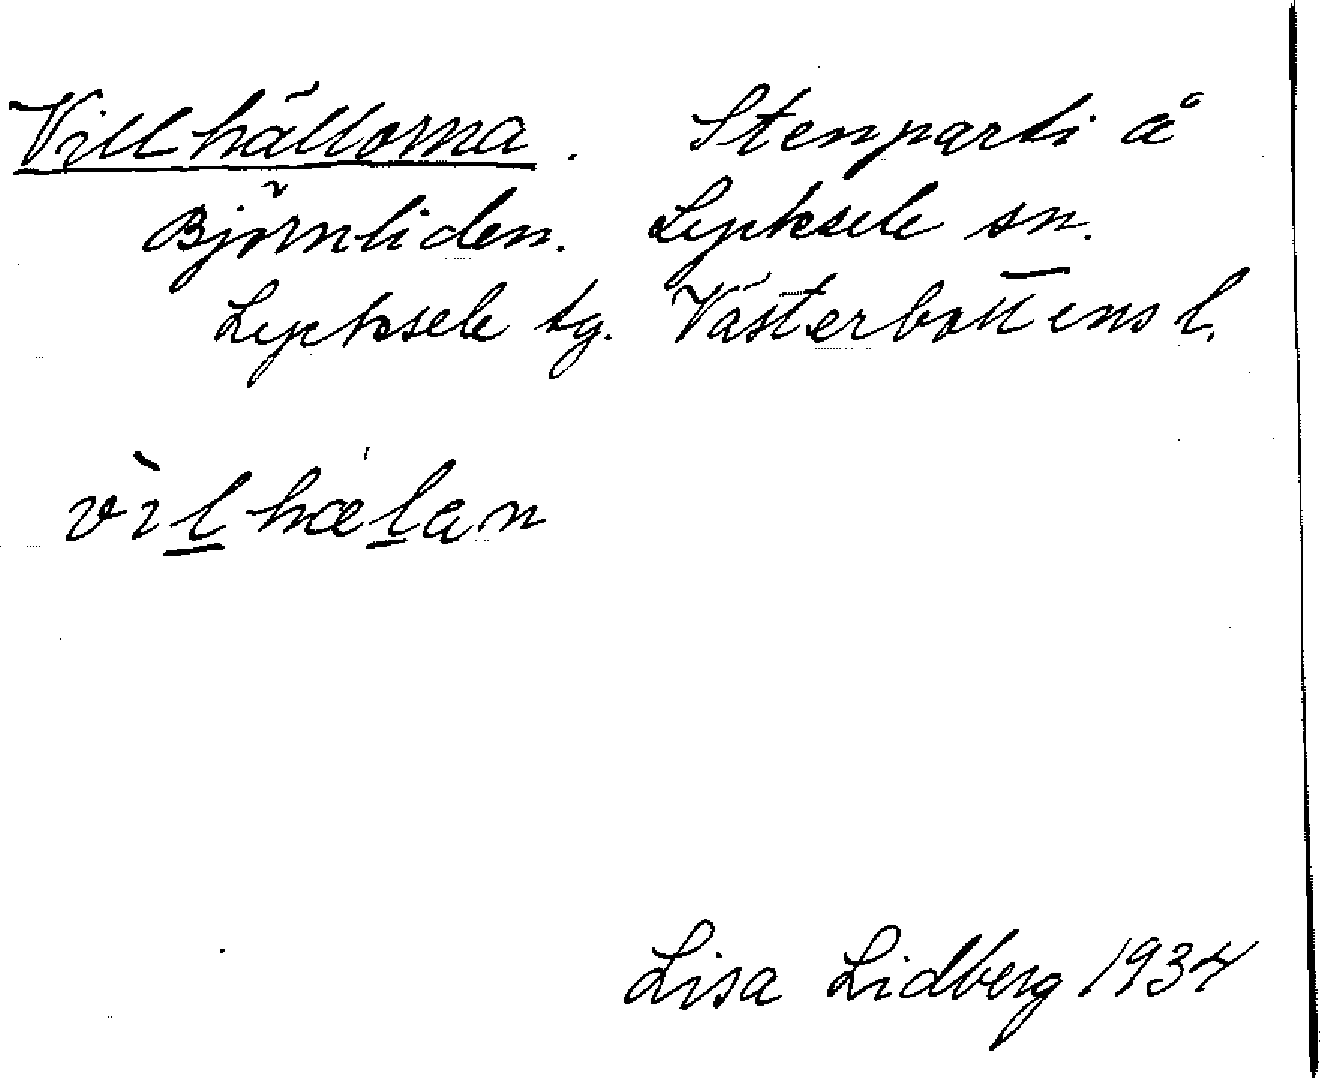 Villhällorna. Stenparti å
Björnliden. Lycksele sn.
Lycksele tg. Västerbottens l.
vìl̲hæl̲an
Lisa Lidberg 1934